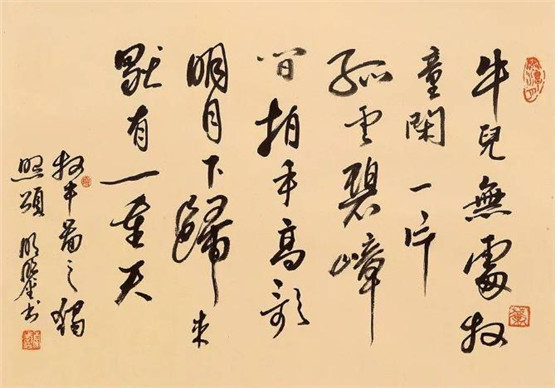 牛兒無處牧
童閑一片
孤雲碧嶂
間拍手高歌
明月下歸來
猷有一重天
牧牛圖之獨
照頌